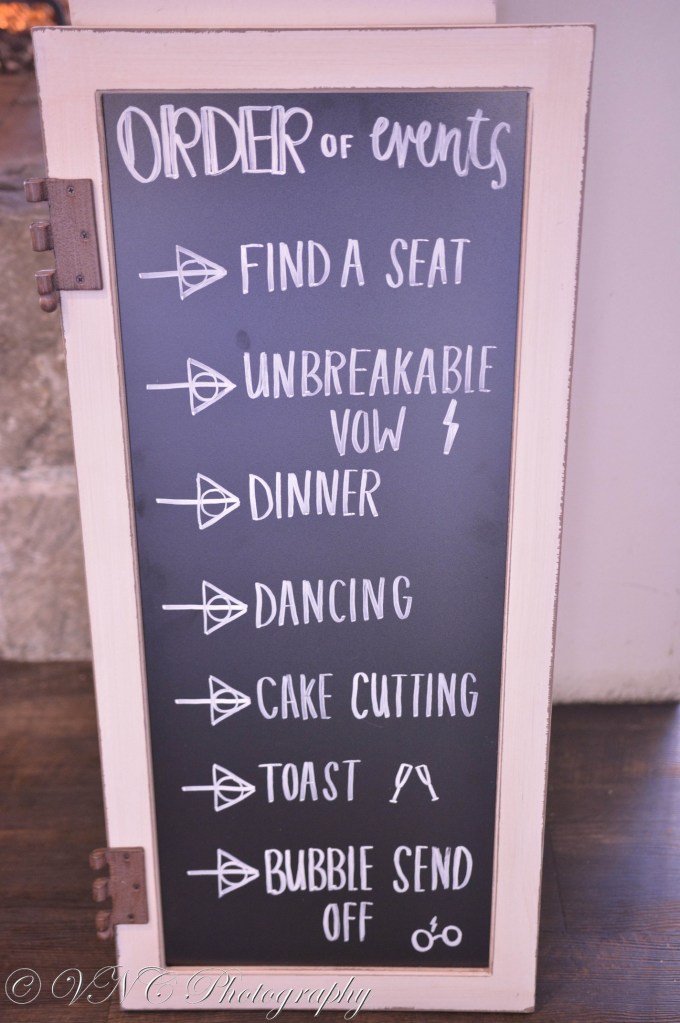 ORDER OF events
FIND A SEAT
UNBREAKABLE
VOW
DINNER
DANCING
CAKE CUTTING
TOAST
BUBBLE SEND
OFF
© VNC Photography